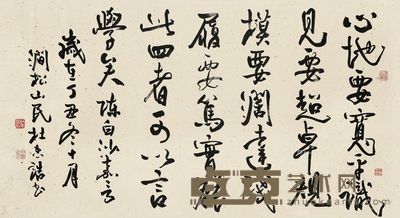 心地要寬平識
見要超卓規
模要闊達踐
履要篤實能
此四者可以言
學矣陳白沙嘉言
歲在丁丑冬十月
澗松山民杜忠誥書